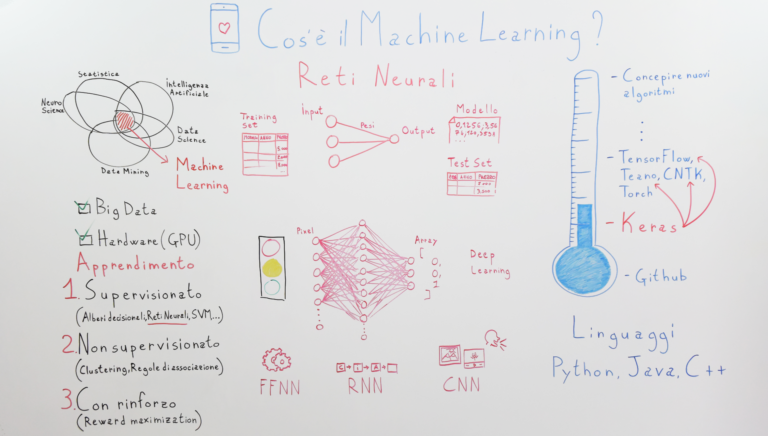 Cos'è il Machine Learning?
Statistica
Intelligenza
Artificiale
Neuro
Science
Data
Science
Data Mining
Machine
Learning
Big Data
Hardware (GPU)
Apprendimento
1. Supervisionato
(Alberi decisionali, Reti Neurali, SVM,...)
2. Non supervisionato
(Clustering, Regole di associazione)
3. Con rinforzo
(Reward maximization)
Reti Neurali
Training
Set
Input
Pesi
Output
Modello
Test Set
Pixel
Array
[
0,
0,
1
]
Deep
Learning
FFNN
C I A
RNN
CNN
- Concepire nuovi
algoritmi
- TensorFlow,
Teano, CNTK,
Torch
- Keras
- Github
Linguaggi
Python, Java, C++